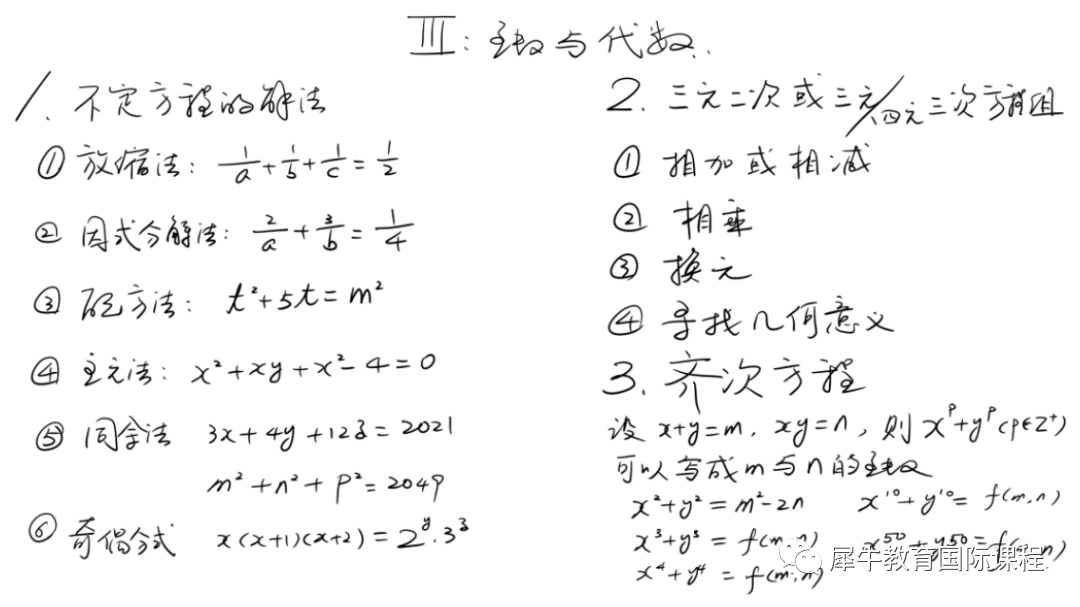 III: 函数与代数.
1. 不定方程的解法
① 放缩法: 1/a + 1/b + 1/c = 1/2
② 因式分解法: 2/a + 3/b = 1/4
③ 配方法: t²+5t = m²
④ 主元法: x²+xy+x²-4=0
⑤ 同余法 3x+4y+12z=2021
m²+n²+p²=2049
⑥ 奇偶分式 x(x+1)(x+2)=2^y·3^z
2. 三元二次或三元/四元三次方程组
① 相加或相减
② 相乘
③ 换元
④ 寻找几何意义
3. 齐次方程
设 x+y=m, xy=n, 则 x^p+y^p (p∈Z⁺)
可以写成m与n的函数
x²+y²=m²-2n x^10+y^10=f(m,n)
x³+y³=f(m,n) x^50+y^50=f(m,n)
x⁴+y⁴=f(m,n)
犀牛教育国际课程